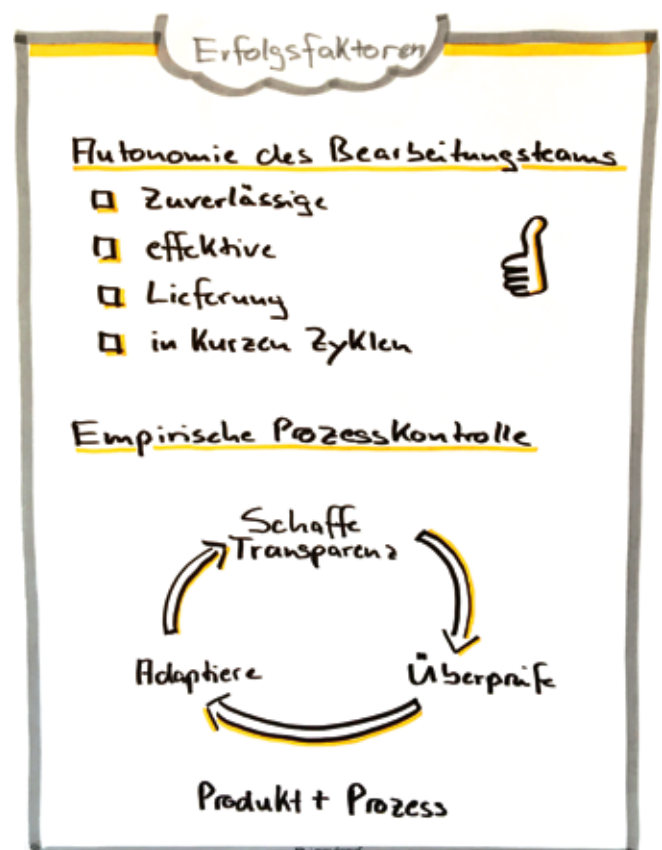 Erfolgsfaktoren
Autonomie des Bearbeitungsteams
Zuverlässige
effektive
Lieferung
in kurzen Zyklen
Empirische Prozesskontrolle
Schaffe
Transparenz
Adaptiere
Überprüfe
Produkt + Prozess